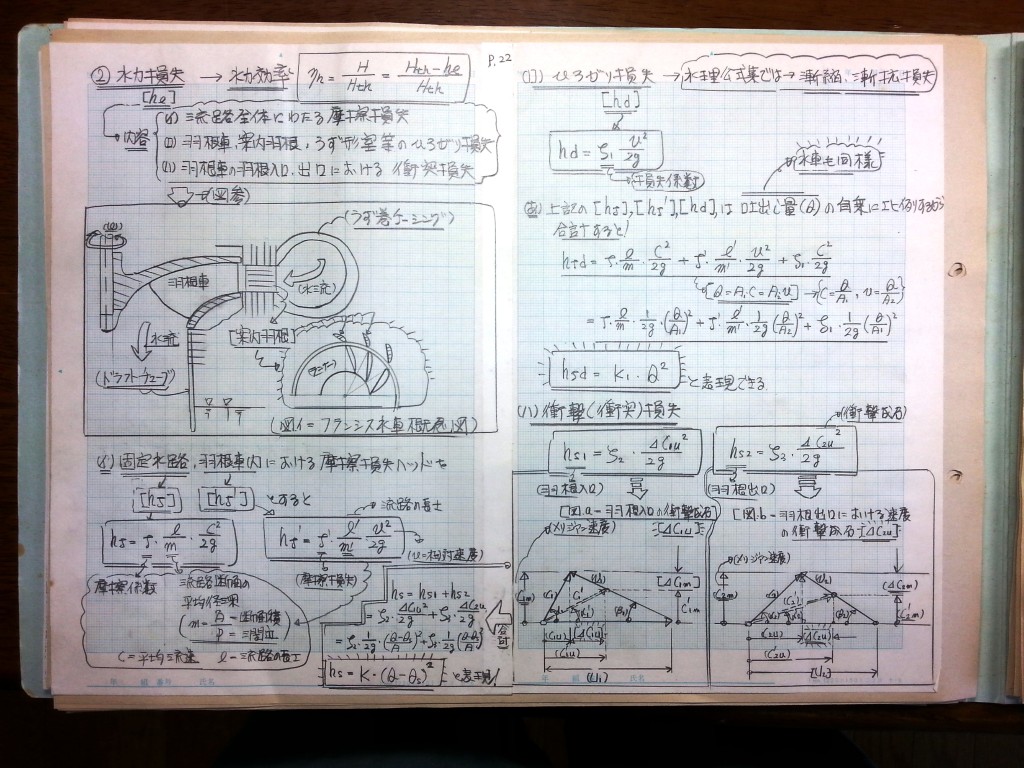 P.22
② 水力損失 → 水力効率 ηh = H/Hth = (Hth-he)/Hth
[he]
内容
(イ) 流路全体にわたる摩擦損失
(ロ) 羽根車、案内羽根、うず形室等のひろがり損失
(ハ) 羽根車の羽根入口、出口における衝突損失
(図参)
(うず巻ケーシング)
羽根車
(水流)
水流
案内羽根
(ドラフトチューブ)
(ランナー)
(図イ=フランシス水車概略図)
(イ) 固定水路、羽根車内における摩擦損失ヘッドを
[hf] [hf'] とすると
流路の長さ
hf = ζ・l/m・C²/2g
hf' = ζ'・l'/m'・υ²/2g
(υ=相対速度)
摩擦係数
(摩擦損失)
流路断面の
平均径深
m = A-断面積
P=周辺
C=平均流速 l-流路の長さ
hs = hs1 + hs2
合計
hs = K・(Q-Qs)² と表現!
(ロ) ひろがり損失 → 水理公式集では → 漸縮、漸拡損失
[hd]
hd = ζ1 υ²/2g
損失係数
水車も同様
上記の[hf],[hf'],[hd],は吐出し量(Q)の自乗に比例するから
合計すると!
hfd = ζ・l/m・C²/2g + ζ'・l'/m'・υ²/2g + ζ1・C²/2g
[Q=A1・C=A2υ] → (C=Q/A1, υ=Q/A2)
= ζ・l/m・1/2g(Q/A1)² + ζ'・l'/m'・1/2g(Q/A2)² + ζ1・1/2g(Q/A1)²
hfd = K1・Q² と表現できる
(ハ) 衝撃(衝突)損失
(衝撃成分)
hs1 = ζ2・ΔC1u²/2g
hs2 = ζ3・ΔC2u²/2g
(羽根入口)
(羽根出口)
[図.a-羽根入口の衝撃成分
[ΔC1u]
[図.b-羽根出口における速度
の衝撃成分[ΔC2u]
(メリジャン速度)
(メリジャン速度)
[ΔC1m]
(C1m)
C'1m
(C1u)
(ΔC1u)
(U1)
(C2m)
(C2u)
(ΔC2u)
(C'2u)
(U2)
年 組 番号 氏名
年 組 氏名